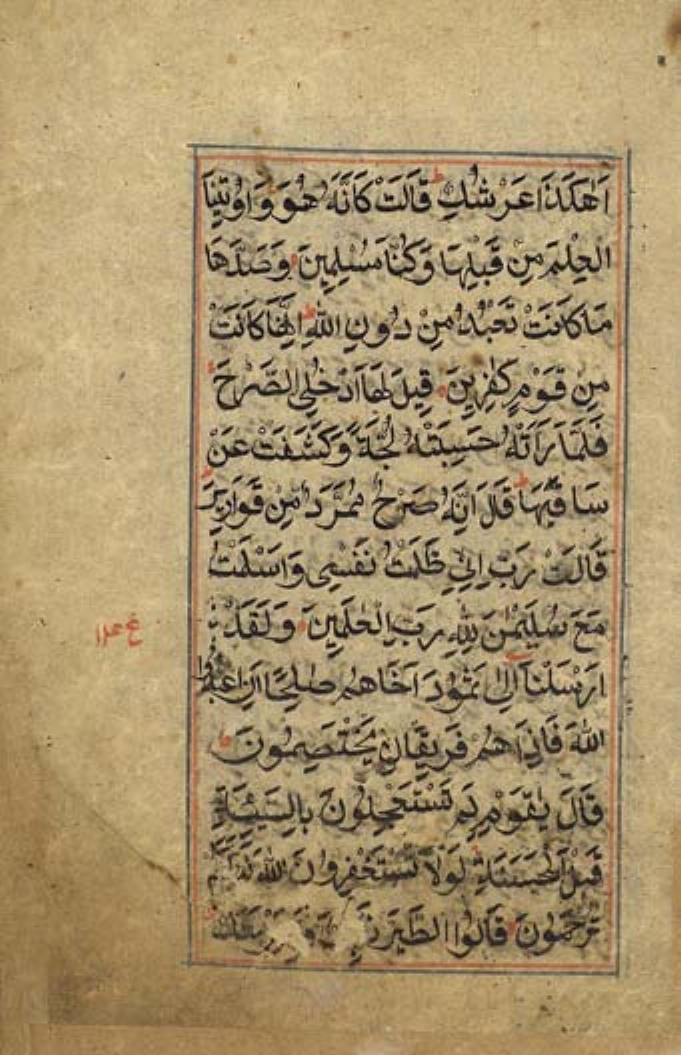 اَهٰكَذَا عَرْشُكِ قَالَتْ كَاَنَّهُ هُوَ وَاُوتِينَا
الْعِلْمَ مِنْ قَبْلِهَا وَكُنَّا مُسْلِمِينَ وَصَدَّهَا
مَا كَانَتْ تَعْبُدُ مِنْ دُونِ اللهِ اِنَّهَا كَانَتْ
مِنْ قَوْمٍ كٰفِرِينَ قِيلَ لَهَا ادْخُلِى الصَّرْحَ
فَلَمَّا رَاَتْهُ حَسِبَتْهُ لُجَّةً وَكَشَفَتْ عَنْ
سَاقَيْهَا قَالَ اِنَّهُ صَرْحٌ مُمَرَّدٌ مِنْ قَوَارِيرَ
قَالَتْ رَبِّ اِنِّى ظَلَمْتُ نَفْسِى وَاَسْلَمْتُ
مَعَ سُلَيْمٰنَ لِلّٰهِ رَبِّ الْعٰلَمِينَ وَلَقَدْ
اَرْسَلْنَا اِلٰى ثَمُودَ اَخَاهُمْ صٰلِحًا اَنِ اعْبُدُوا
اللهَ فَاِذَا هُمْ فَرِيقَانِ يَخْتَصِمُونَ
قَالَ يٰقَوْمِ لِمَ تَسْتَعْجِلُونَ بِالسَّيِّئَةِ
قَبْلَ الْحَسَنَةِ لَوْلَا تَسْتَغْفِرُونَ اللهَ لَعَلَّكُمْ
تُرْحَمُونَ قَالُوا اطَّيَّرْنَا